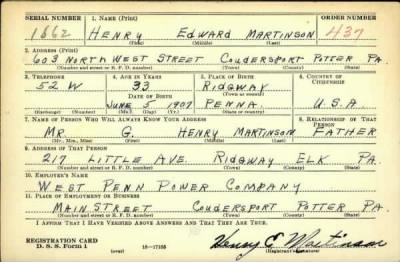 SERIAL NUMBER 1. NAME (Print) ORDER NUMBER
1862 HENRY EDWARD MARTINSON 437
(First) (Middle) (Last)
2. ADDRESS (Print)
603 NORTH WEST STREET COUDERSPORT POTTER PA.
(Number and street or R. F. D. number) (Town) (County) (State)
3. TELEPHONE 4. AGE IN YEARS 5. PLACE OF BIRTH 6. COUNTRY OF CITIZENSHIP
52 W 33 RIDGWAY
DATE OF BIRTH (Town or county)
JUNE 5 1907 PENNA. U.S.A.
(Exchange) (Number) (Mo.) (Day) (Yr.) (State or country)
7. NAME OF PERSON WHO WILL ALWAYS KNOW YOUR ADDRESS 8. RELATIONSHIP OF THAT PERSON
MR. G. HENRY MARTINSON FATHER
(Mr., Mrs., Miss) (First) (Middle) (Last)
9. ADDRESS OF THAT PERSON
217 LITTLE AVE. RIDGWAY ELK PA.
(Number and street or R. F. D. number) (Town) (County) (State)
10. EMPLOYER'S NAME
WEST PENN POWER COMPANY
11. PLACE OF EMPLOYMENT OR BUSINESS
MAIN STREET COUDERSPORT POTTER PA.
(Number and street or R. F. D. number) (Town) (County) (State)
I AFFIRM THAT I HAVE VERIFIED ABOVE ANSWERS AND THAT THEY ARE TRUE.
REGISTRATION CARD
D. S. S. Form 1 (over) 16—17105 Henry E. Martinson